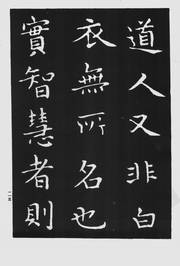 道人又非白
衣無所名也
實智慧者則